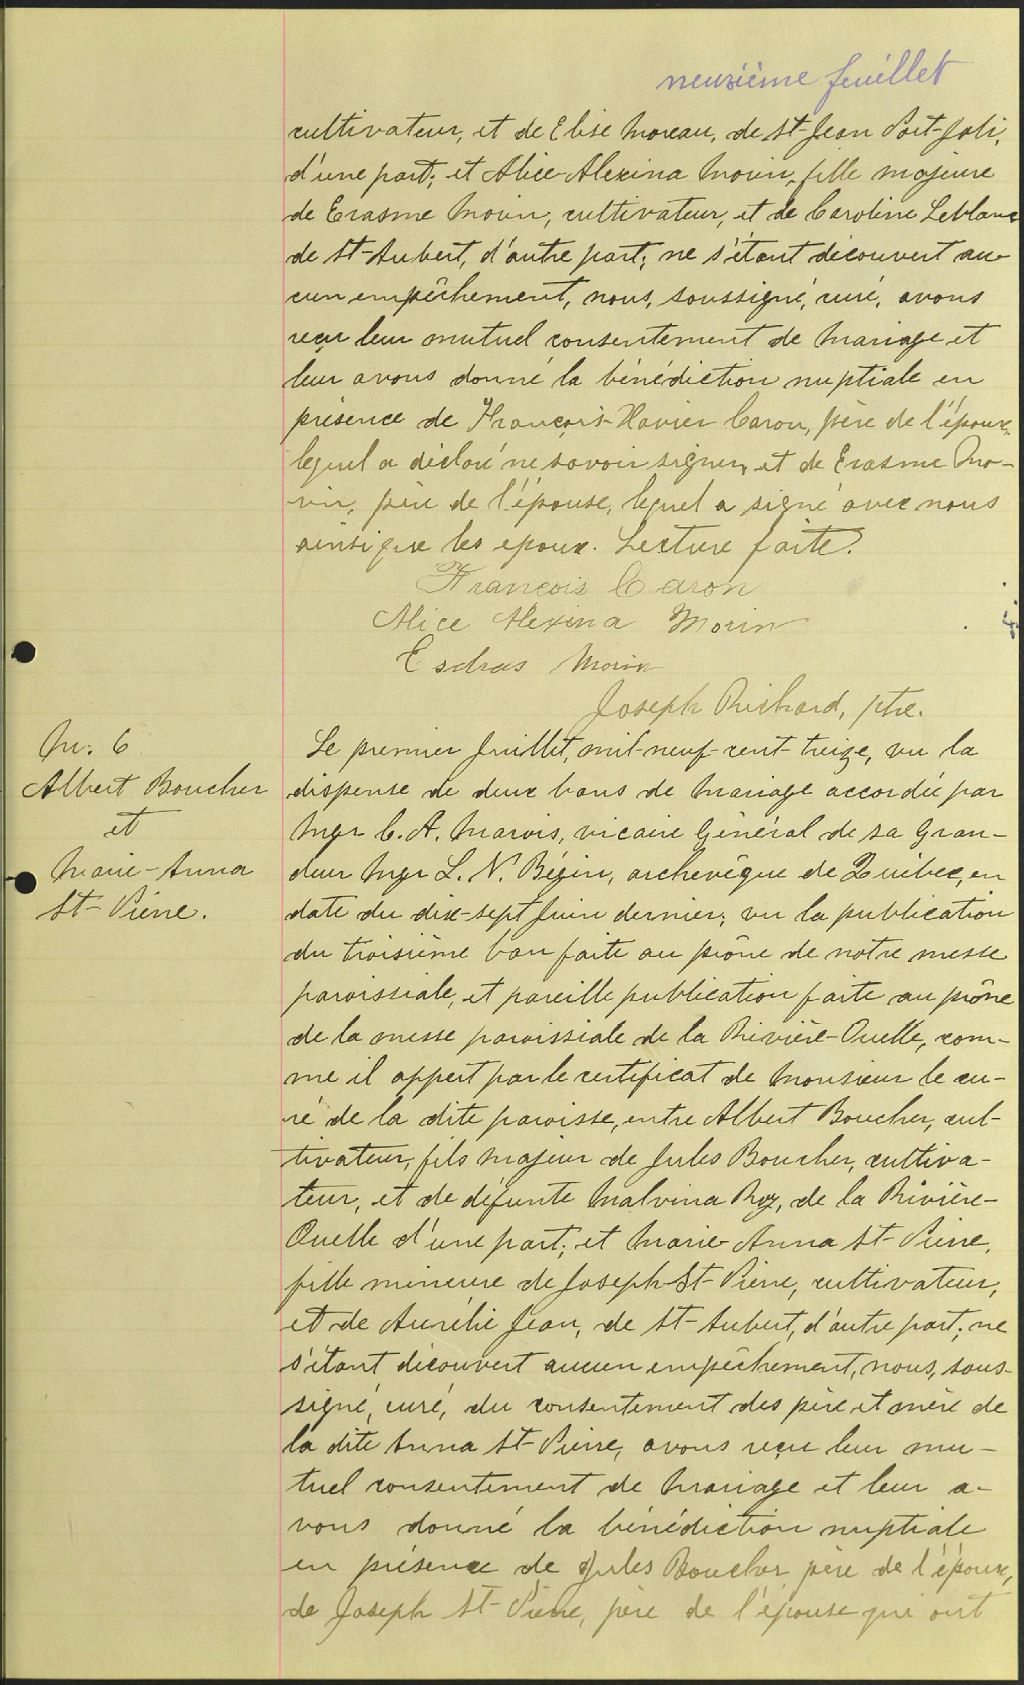 neuvième feuillet
cultivateur, et de Elise Moreau, de St-Jean Port-Joli,
d'une part; et Alice-Alexina Morin, fille majeure
de Erasme Morin, cultivateur, et de Caroline Leblanc
de St-Aubert, d'autre part; ne s'étant découvert au-
cun empêchement, nous, soussigné, curé, avons
reçu leur mutuel consentement de mariage et
leur avons donné la bénédiction nuptiale en
présence de François-Xavier Caron, père de l'époux,
lequel a déclaré ne savoir signer, et de Erasme Mo-
rin, père de l'épouse, lequel a signé avec nous
ainsi que les epoux. Lecture faite.
François Caron
Alice Alexina Morin
Esdras Morin
Joseph Richard, ptre.
M. 6
Albert Boucher
et
Marie-Anna
St-Pierre.
Le premier Juillet, mil-neuf-cent-treize, vu la
dispense de deux bans de mariage accordée par
Mgr C. A. Marois, vicaire Général de sa Gran-
deur Mgr L. N. Bégin, archevêque de Québec, en
date du dix-sept Juin dernier; vu la publication
du troisième ban faite au prône de notre messe
paroissiale, et pareille publication faite au prône
de la messe paroissiale de la Rivière-Ouelle, com-
me il appert par le certificat de Monsieur le cu-
ré de la dite paroisse, entre Albert Boucher, cul-
tivateur, fils majeur de Jules Boucher, cultiva-
teur, et de défunte Malvina Roy, de la Rivière-
Ouelle d'une part; et Marie-Anna St-Pierre,
fille mineure de Joseph St-Pierre, cultivateur,
et de Aurélie Jean, de St-Aubert, d'autre part; ne
s'étant découvert aucun empêchement, nous, sous-
signé, curé, du consentement des père et mère de
la dite Anna St-Pierre, avons reçu leur mu-
tuel consentement de mariage et leur a-
vons donné la bénédiction nuptiale
en présence de Jules Boucher père de l'époux,
de Joseph St-Pierre, père de l'épouse qui ont